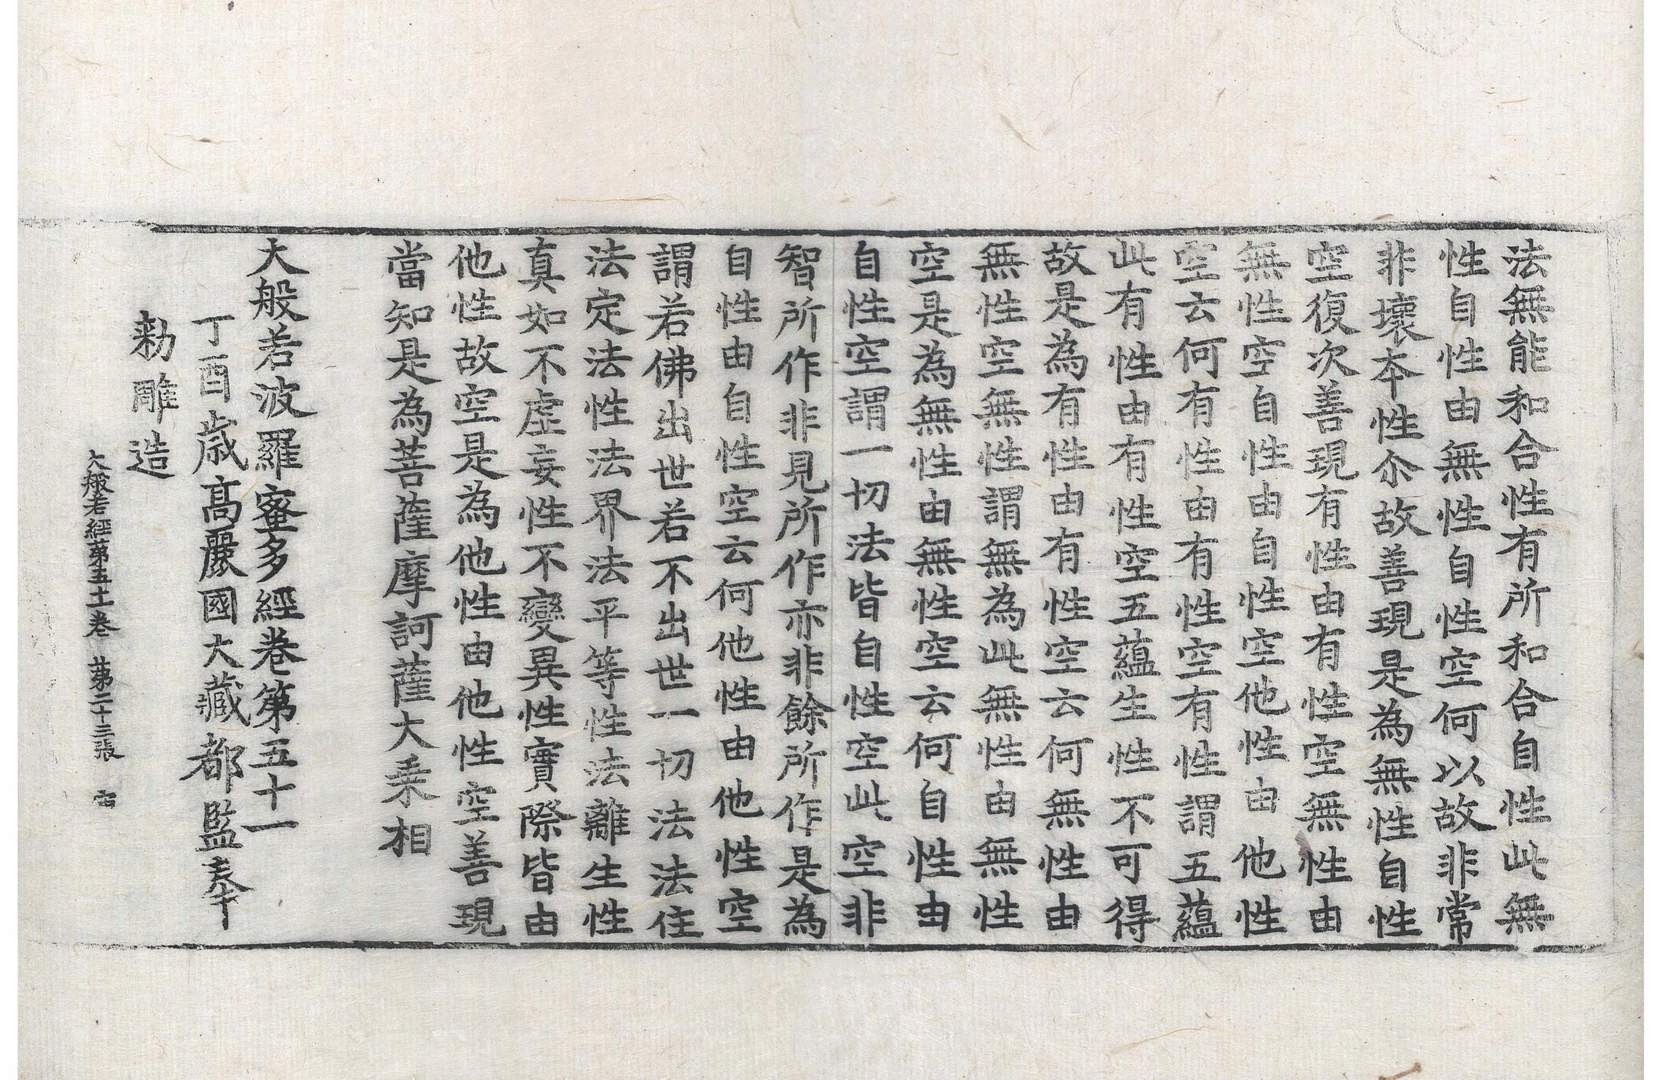 法無能和合性有所和合自性此無
性自性由無性自性空何以故非常
非壞本性尒故善現是為無性自性
空復次善現有性由有性空無性由
無性空自性由自性空他性由他性
空云何有性由有性空有性謂五蘊
此有性由有性空五蘊生性不可得
故是為有性由有性空云何無性由
無性空無性謂無為此無性由無性
空是為無性由無性空云何自性由
自性空謂一切法皆自性空此空非
智所作非見所作亦非餘所作是為
自性由自性空云何他性由他性空
謂若佛出世若不出世一切法法住
法定法性法界法平等性法離生性
真如不虛妄性不變異性實際皆由
他性故空是為他性由他性空善現
當知是為菩薩摩訶薩大乗相
大般若波羅蜜多經卷第五十一
丁酉歲高麗國大藏都監奉
勑雕造
大般若經苐五十一卷 苐二十三張 宙